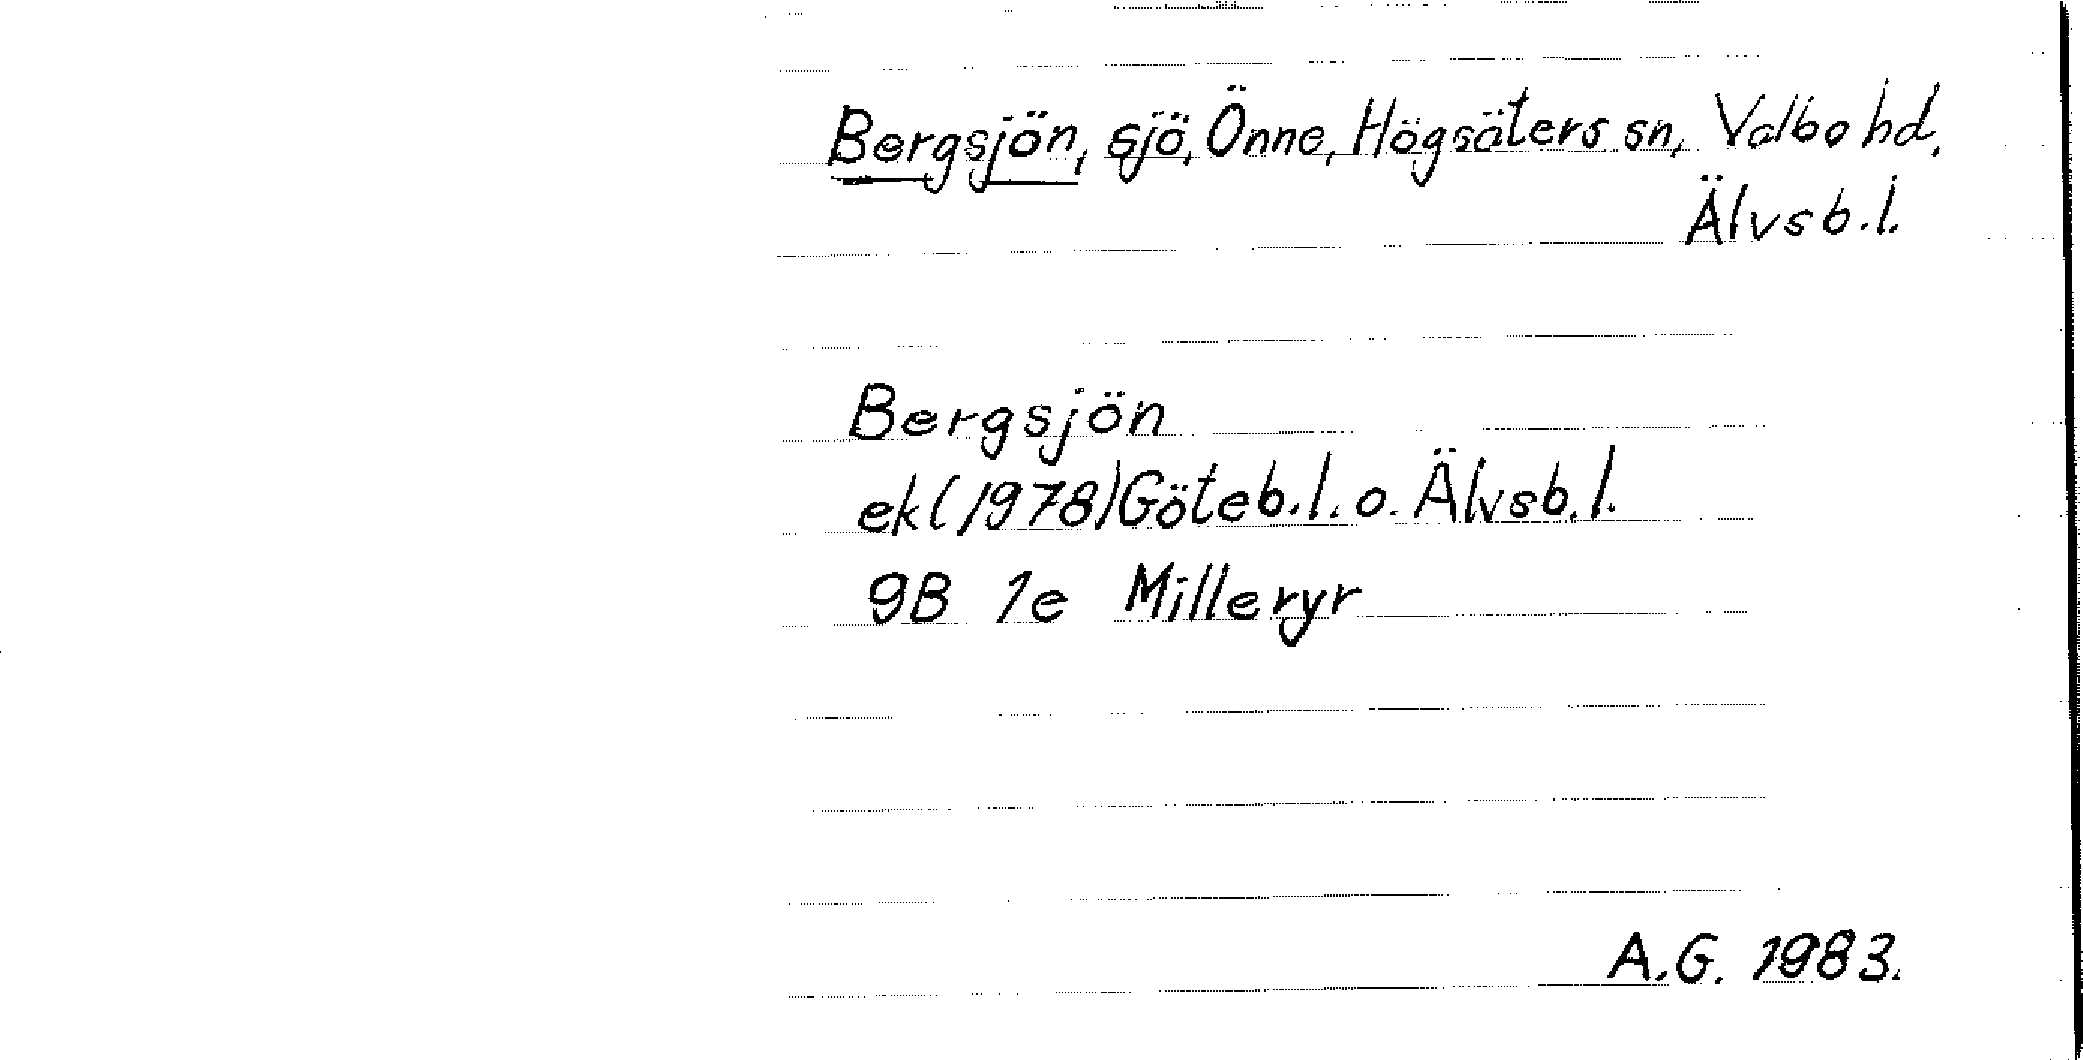 Bergsjön, sjö, Önne, Högsäters sn, Valbo hd,
Älvsb.l.
Bergsjön
ek (1978) Göteb.l. o. Älvsb.l.
9B 1e Milleryr
A.G. 1983.